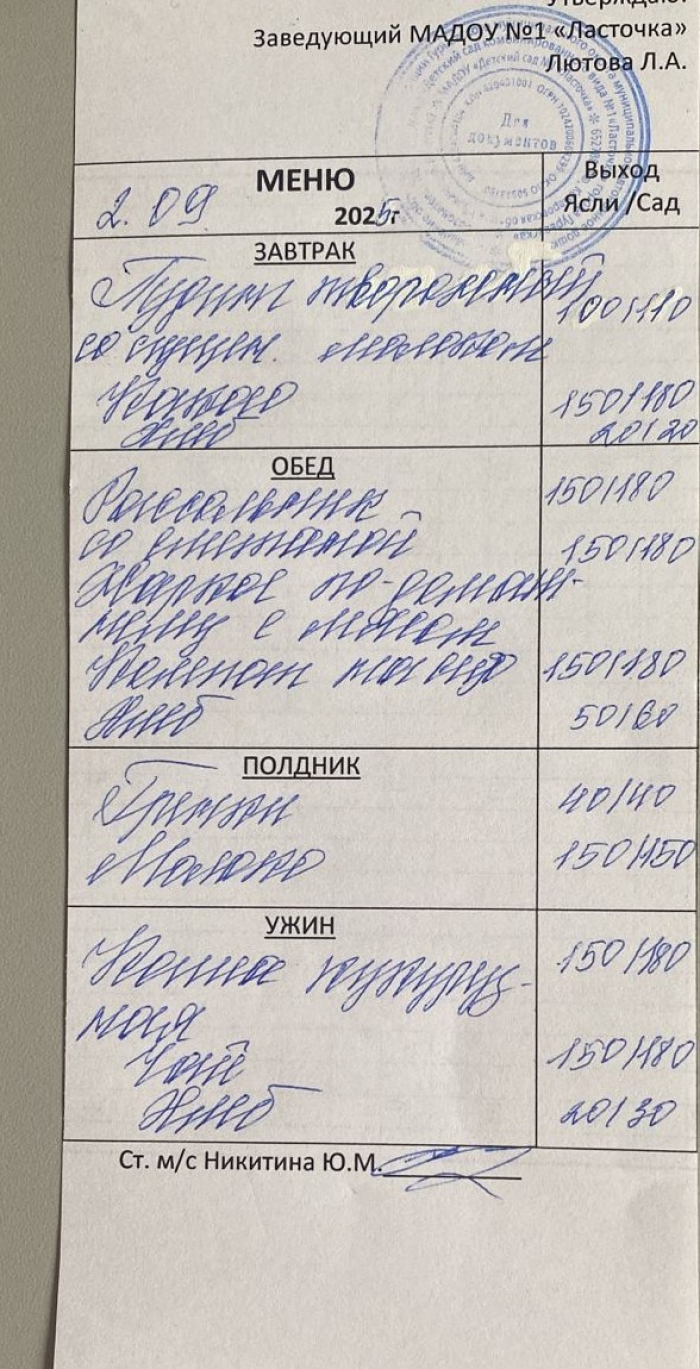 Утверждаю:
Заведующий МАДОУ №1 «Ласточка»
Лютова Л.А.
Для
документов
МЕНЮ
2.09 2025г
Выход
Ясли /Сад
ЗАВТРАК
Пудинг творожный 100/110
со сгущ. молоком
Какао 150/180
Хлеб 20/20
ОБЕД
Рассольник 150/180
со сметаной 150/180
Жаркое по-домаш-
нему с мясом
Компот 150/180
Хлеб 50/60
ПОЛДНИК
Гренки 40/40
Молоко 150/150
УЖИН
Каша кукуруз- 150/180
ная
Чай 150/180
Хлеб 20/30
Ст. м/с Никитина Ю.М.